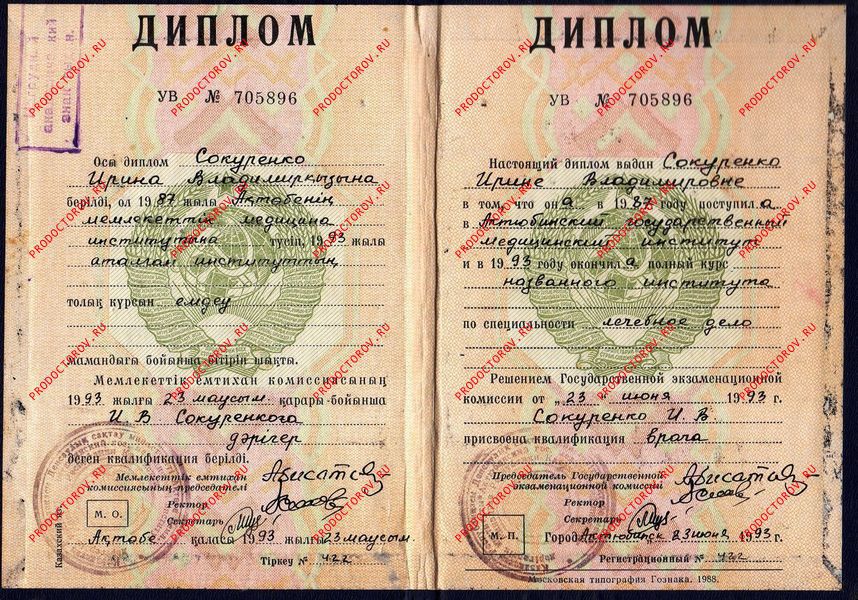 ДИПЛОМ
УВ № 705896
Осы диплом Сокуренко
Ирина Владимирқызына
берілді, ол 1987 жылы Ақтөбенің
мемлекеттік медицина
институтына түсіп, 1993 жылы
аталған институттың
толық курсын емдеу
мамандығы бойынша бітіріп шықты.
Мемлекеттік емтихан комиссиясының
1993 жылғы 23 маусым қарары бойынша
И В Сокуренкоға
дәрігер
деген квалификация берілді.
Мемлекеттік емтихан
комиссиясының председателі
Ректор
Секретарь
М. О.
Ақтөбе қаласы 1993 жылғы 23 маусым.
Тіркеу № 422
Казахский яз.
ДИПЛОМ
УВ № 705896
Настоящий диплом выдан Сокуренко
Ирине Владимировне
в том, что она в 1987 году поступила
в Актюбинский государственный
медицинский институт
и в 1993 году окончила полный курс
названного института
по специальности лечебное дело
Решением Государственной экзаменационной
комиссии от „23" июня 1993 г.
Сокуренко И. В
присвоена квалификация врача
Председатель Государственной
экзаменационной комиссии
Ректор
Секретарь
М. П.
Город Актюбинск 23 июня 1993 г.
Регистрационный № 422
Московская типография Гознака. 1988.
PRODOCTOROV.RU